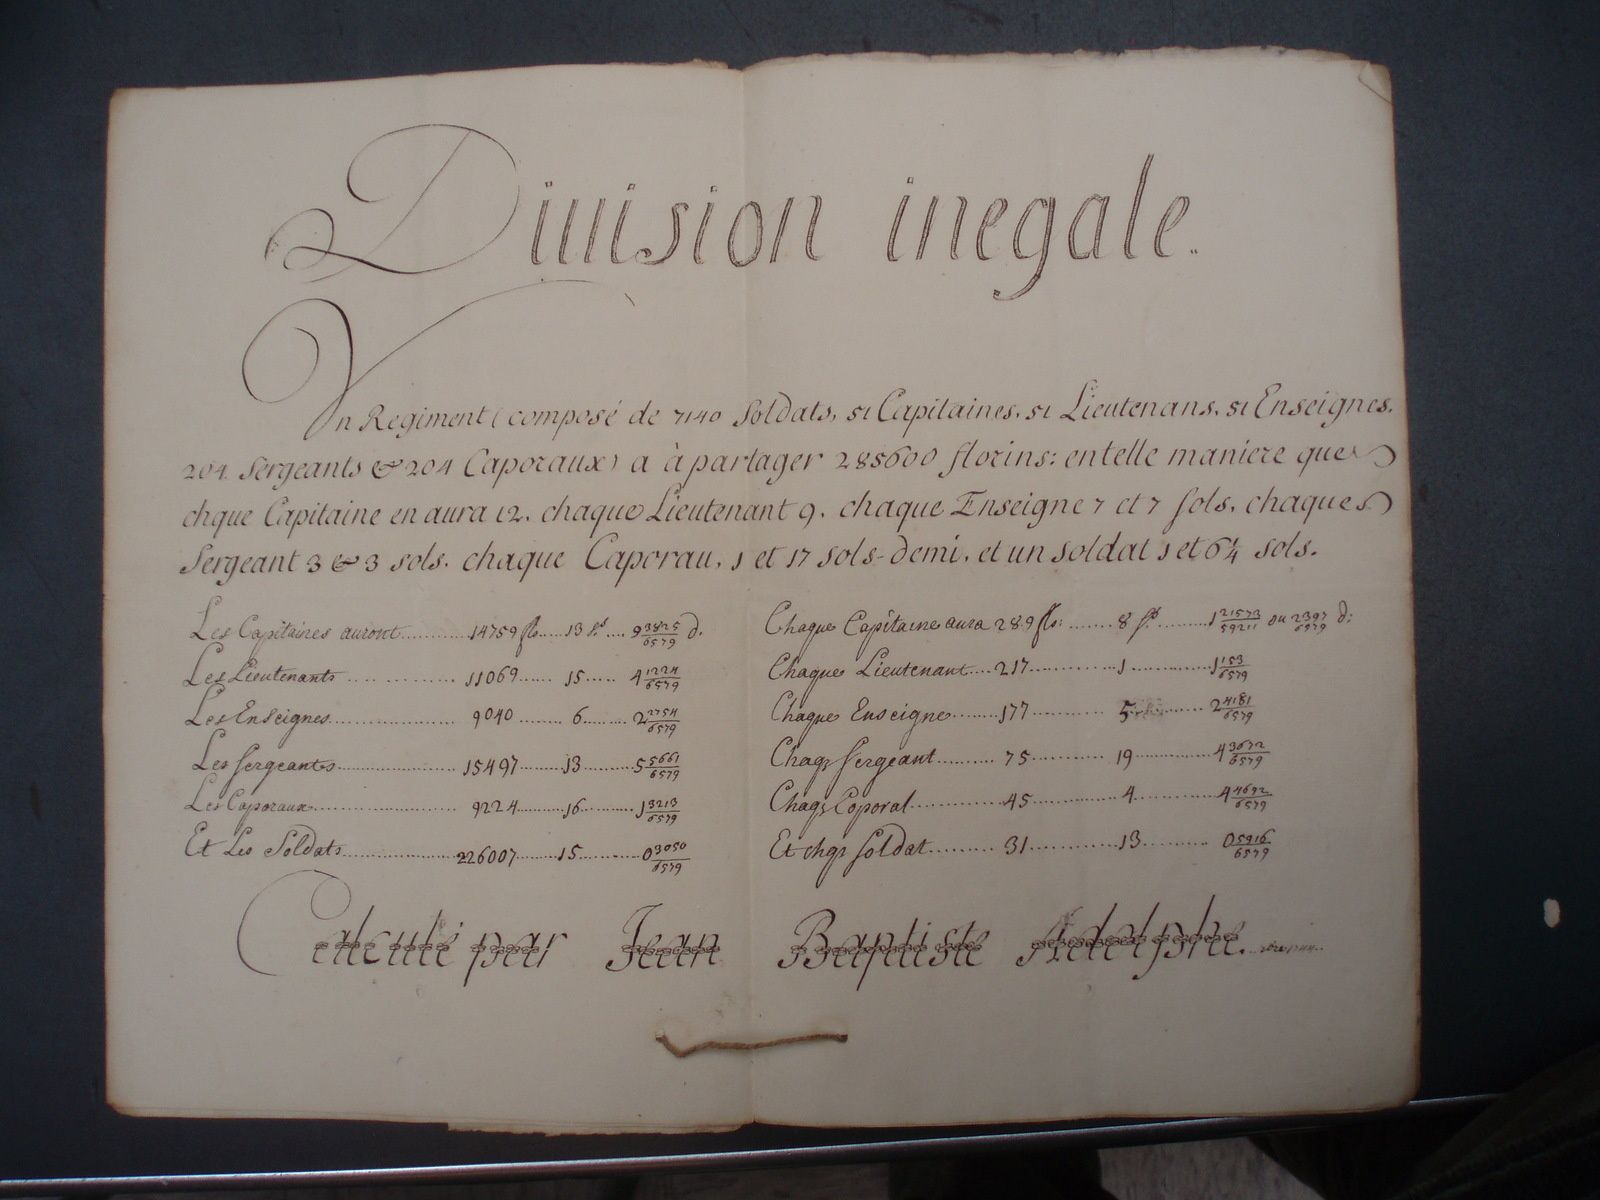 Diuision inegale.
Vn Regiment (composé de 7140 Soldats, 51 Capitaines, 51 Lieutenans, 51 Enseignes,
204 Sergeants & 204 Caporaux) a à partager 285600 florins: entelle maniere que
chque Capitaine en aura 12. chaque Lieutenant 9. chaque Enseigne 7 et 7 sols, chaque
Sergeant 3 & 3 sols. chaque Caporau, 1 et 17 sols-demi, et un soldat 1 et 6 1/4 sols.
Les Capitaines auront 14759 fls 13 s.s 9 3825/6579 d.
Les Lieutenants 11069 15 4 1224/6579
Les Enseignes 9040 6 2 2754/6579
Les Sergeants 15497 13 5 5661/6579
Les Caporaux 9224 16 1 3213/6579
Et Les Soldats 226007 15 0 3050/6579
Chaque Capitaine aura 289 fls: 8 ss 1 21573/59211 ou 2397/6579 d:
Chaque Lieutenant 217 1 1 153/6579
Chaque Enseigne 177 5 2 4181/6579
Chaqs Sergeant 75 19 4 3672/6579
Chaqs Coporal 45 4 4 4692/6579
Et chqs soldat 31 13 0 5916/6579
Calculé par Jean Baptiste Adelphe.